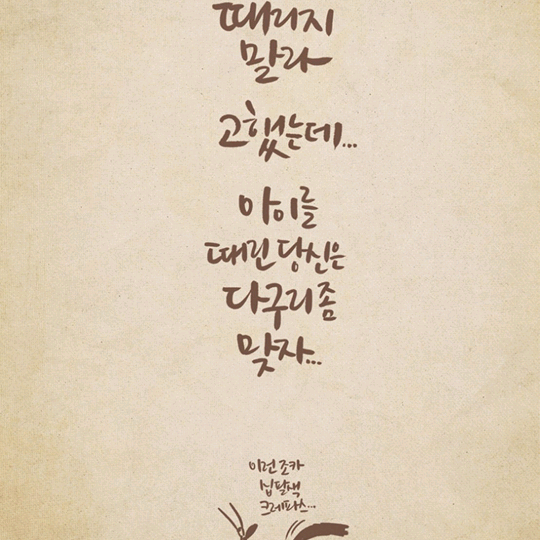 때리지
말라
고했는데...
아이를
때린 당신은
다구리 좀
맞자...
이런 조카
십팔색
크레파스...